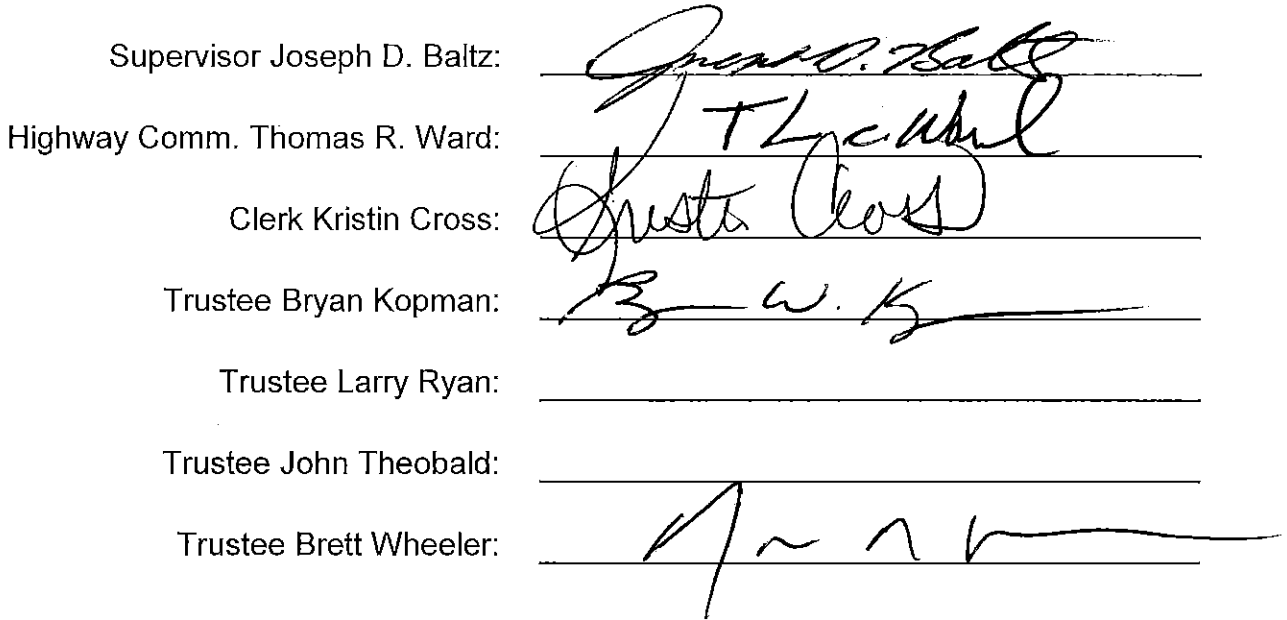 Supervisor Joseph D. Baltz: Joseph D. Baltz
Highway Comm. Thomas R. Ward:
Clerk Kristin Cross: Kristin Cross
Trustee Bryan Kopman: B W. K
Trustee Larry Ryan:
Trustee John Theobald:
Trustee Brett Wheeler: